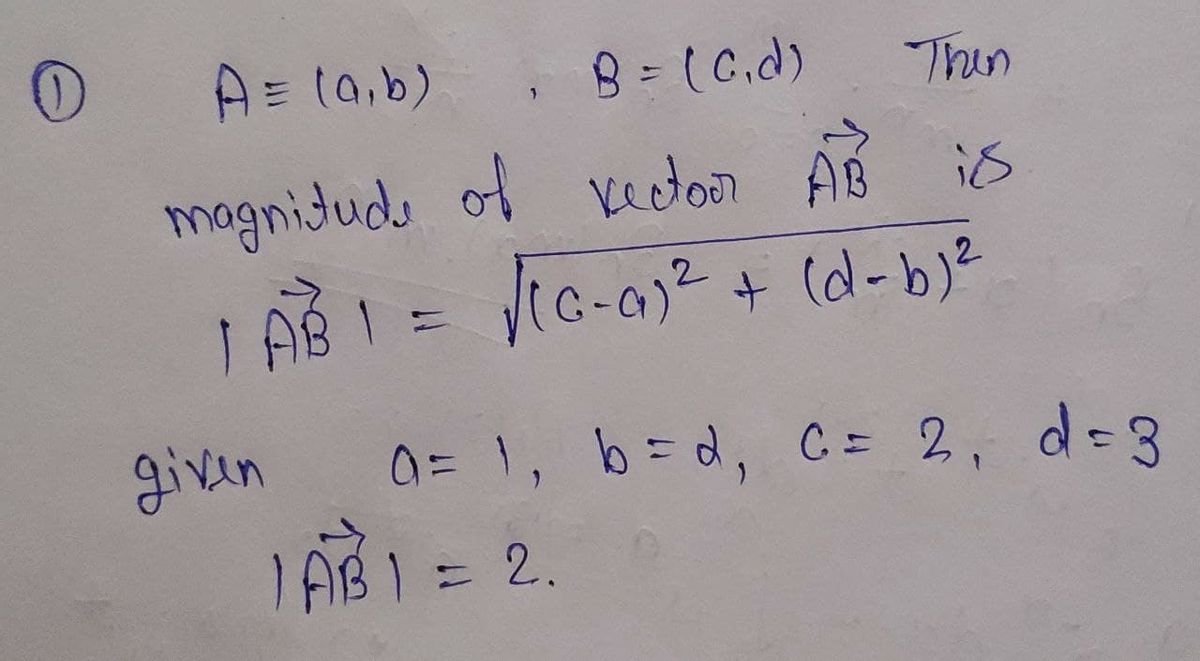 ① A ≡ (a,b) , B = (c,d) Then
magnitude of vector AB⃗ is
|AB⃗| = √((c-a)² + (d-b)²)
given a = 1, b = d, c = 2, d = 3
|AB⃗| = 2.